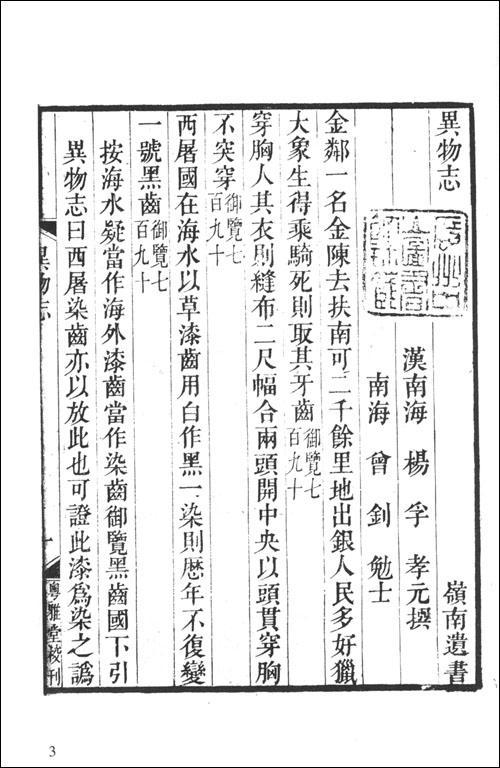 異物志
嶺南遺書
漢南海楊孚孝元撰
南海曾釗勉士
金鄰一名金陳去扶南可二千餘里地出銀人民多好獵
大象生得乘騎死則取其牙齒御覽七百九十
穿胸人其衣則縫布二尺幅合兩頭開中央以頭貫穿胸
不突穿御覽七百九十
西屠國在海水以草漆齒用白作黑一染則歷年不復變
一號黑齒御覽七百九十
按海水疑當作海外漆齒當作染齒御覽黑齒國下引
異物志曰西屠染齒亦以放此也可證此漆爲染之譌
異物志
一
粵雅堂校刊
3